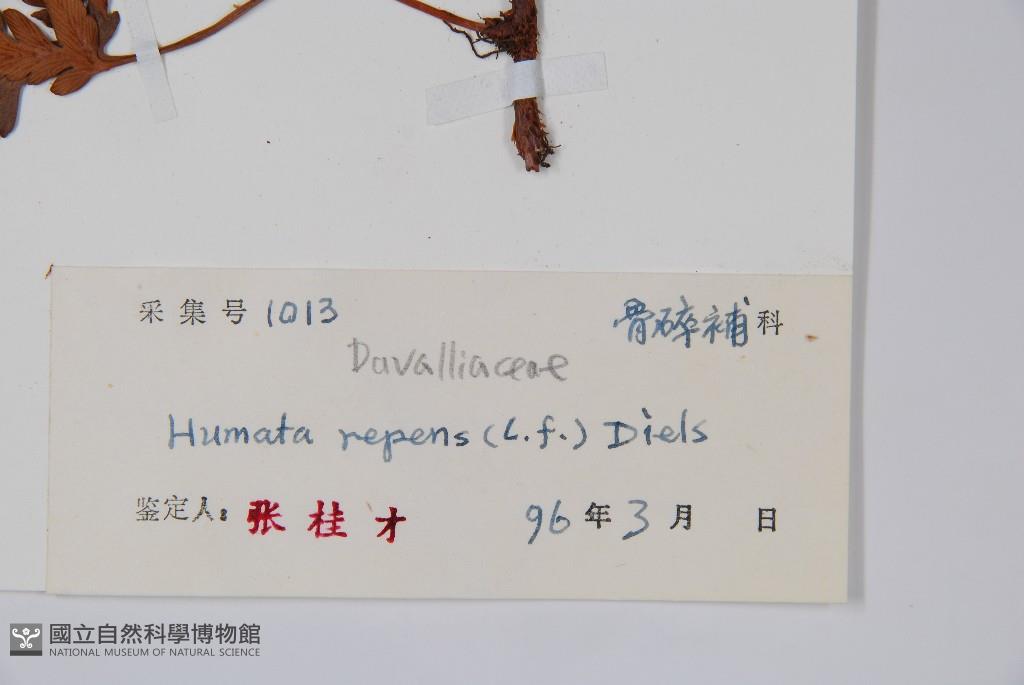 采集号 1013 骨碎補科
Davalliaceae
Humata repens (L.f.) Diels
鉴定人: 张桂才 96年3月 日
國立自然科學博物館
NATIONAL MUSEUM OF NATURAL SCIENCE